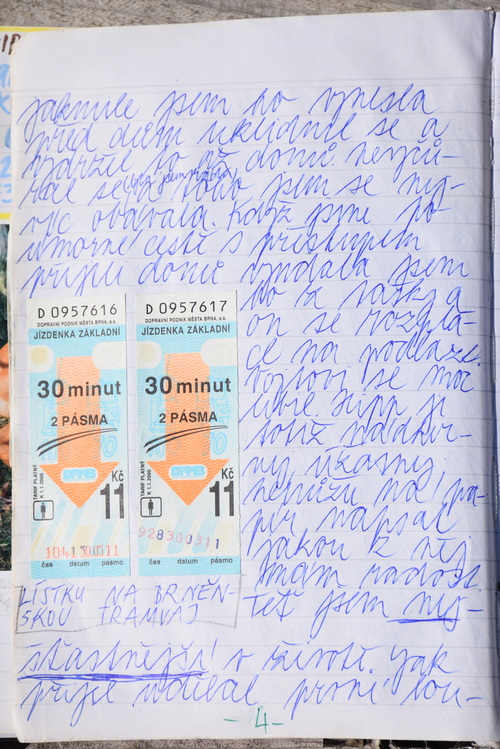 jakmile jsem ho vynesla
před dům uklidnil se a
vydržel to až domů. nevyčů-
ral se (bez pampersky), toho jsem se nej-
víc obávala. Když jsme po
úmorné cestě s přestupem
přijeli domů vyndala jsem
ho z tašky a
on se rozplá-
cl na podlaze.
Vojtovi se moc
líbil. Jipp je
totiž nádher-
ný, úžasný
nemůžu na pa-
pír napsat
jakou z něj
mám radost
teď jsem nej-
šťastnější v životě. Jak
přijel udělal první lou-
D 0957616
DOPRAVNÍ PODNIK MĚSTA BRNA, a.s.
JÍZDENKA ZÁKLADNÍ
30 minut
2 PÁSMA
TARIF PLATNÝ
K 1.1.2000
DPMB
Kč
11
1041 300311
čas datum pásmo
D 0957617
DOPRAVNÍ PODNIK MĚSTA BRNA, a.s.
JÍZDENKA ZÁKLADNÍ
30 minut
2 PÁSMA
TARIF PLATNÝ
K 1.1.2000
DPMB
Kč
11
928 300311
čas datum pásmo
LÍSTKY NA BRNĚN-
SKOU TRAMVAJ
-4-